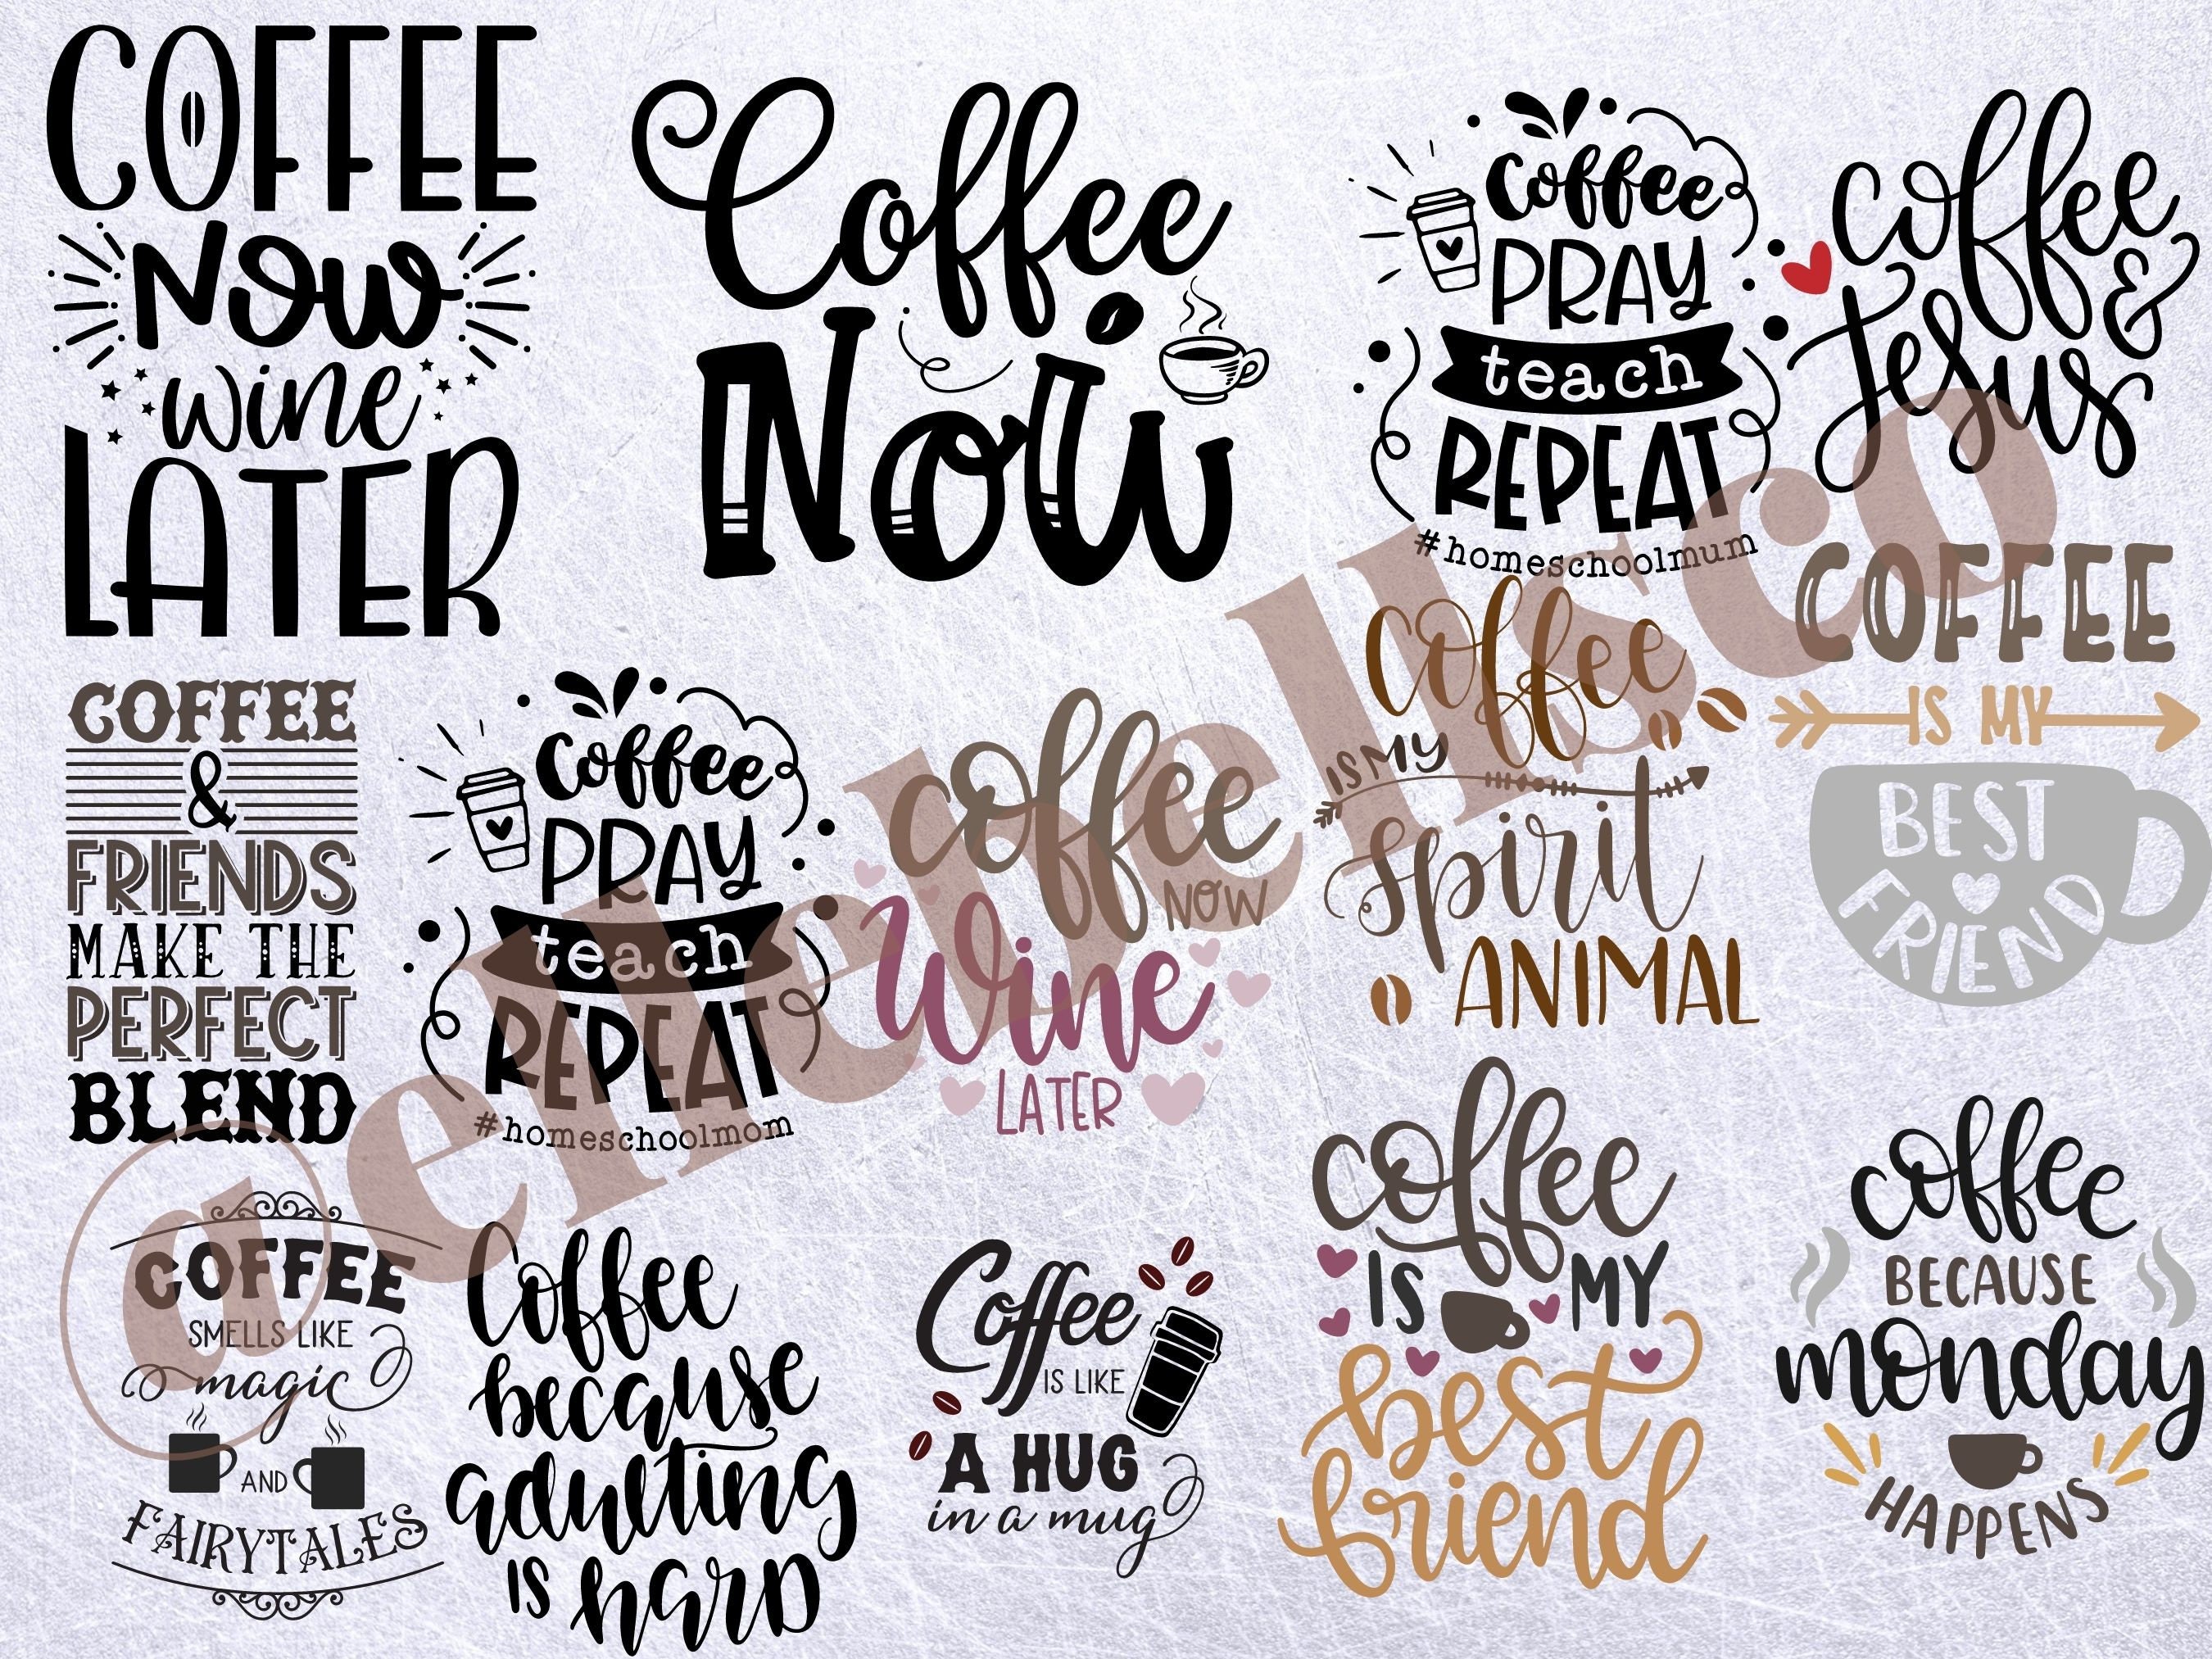 COFFEE
Now
wine
LATER
Coffee
Now
Coffee
PRAY
teach
REPEAT
#homeschoolmum
coffee
&
Jesus
COFFEE
&
FRIENDS
MAKE THE
PERFECT
BLEND
Coffee
PRAY
teach
REPEAT
#homeschoolmom
coffee
NOW
Wine
LATER
coffee
IS MY
spirit
ANIMAL
COFFEE
IS MY
BEST
FRIEND
COFFEE
SMELLS LIKE
magic
AND
FAIRYTALES
Coffee
because
adulting
IS hARD
Coffee
IS LIKE
A HUG
in a mug
coffee
IS MY
best
friend
coffee
BECAUSE
monday
HAPPENS
@ellebellsco